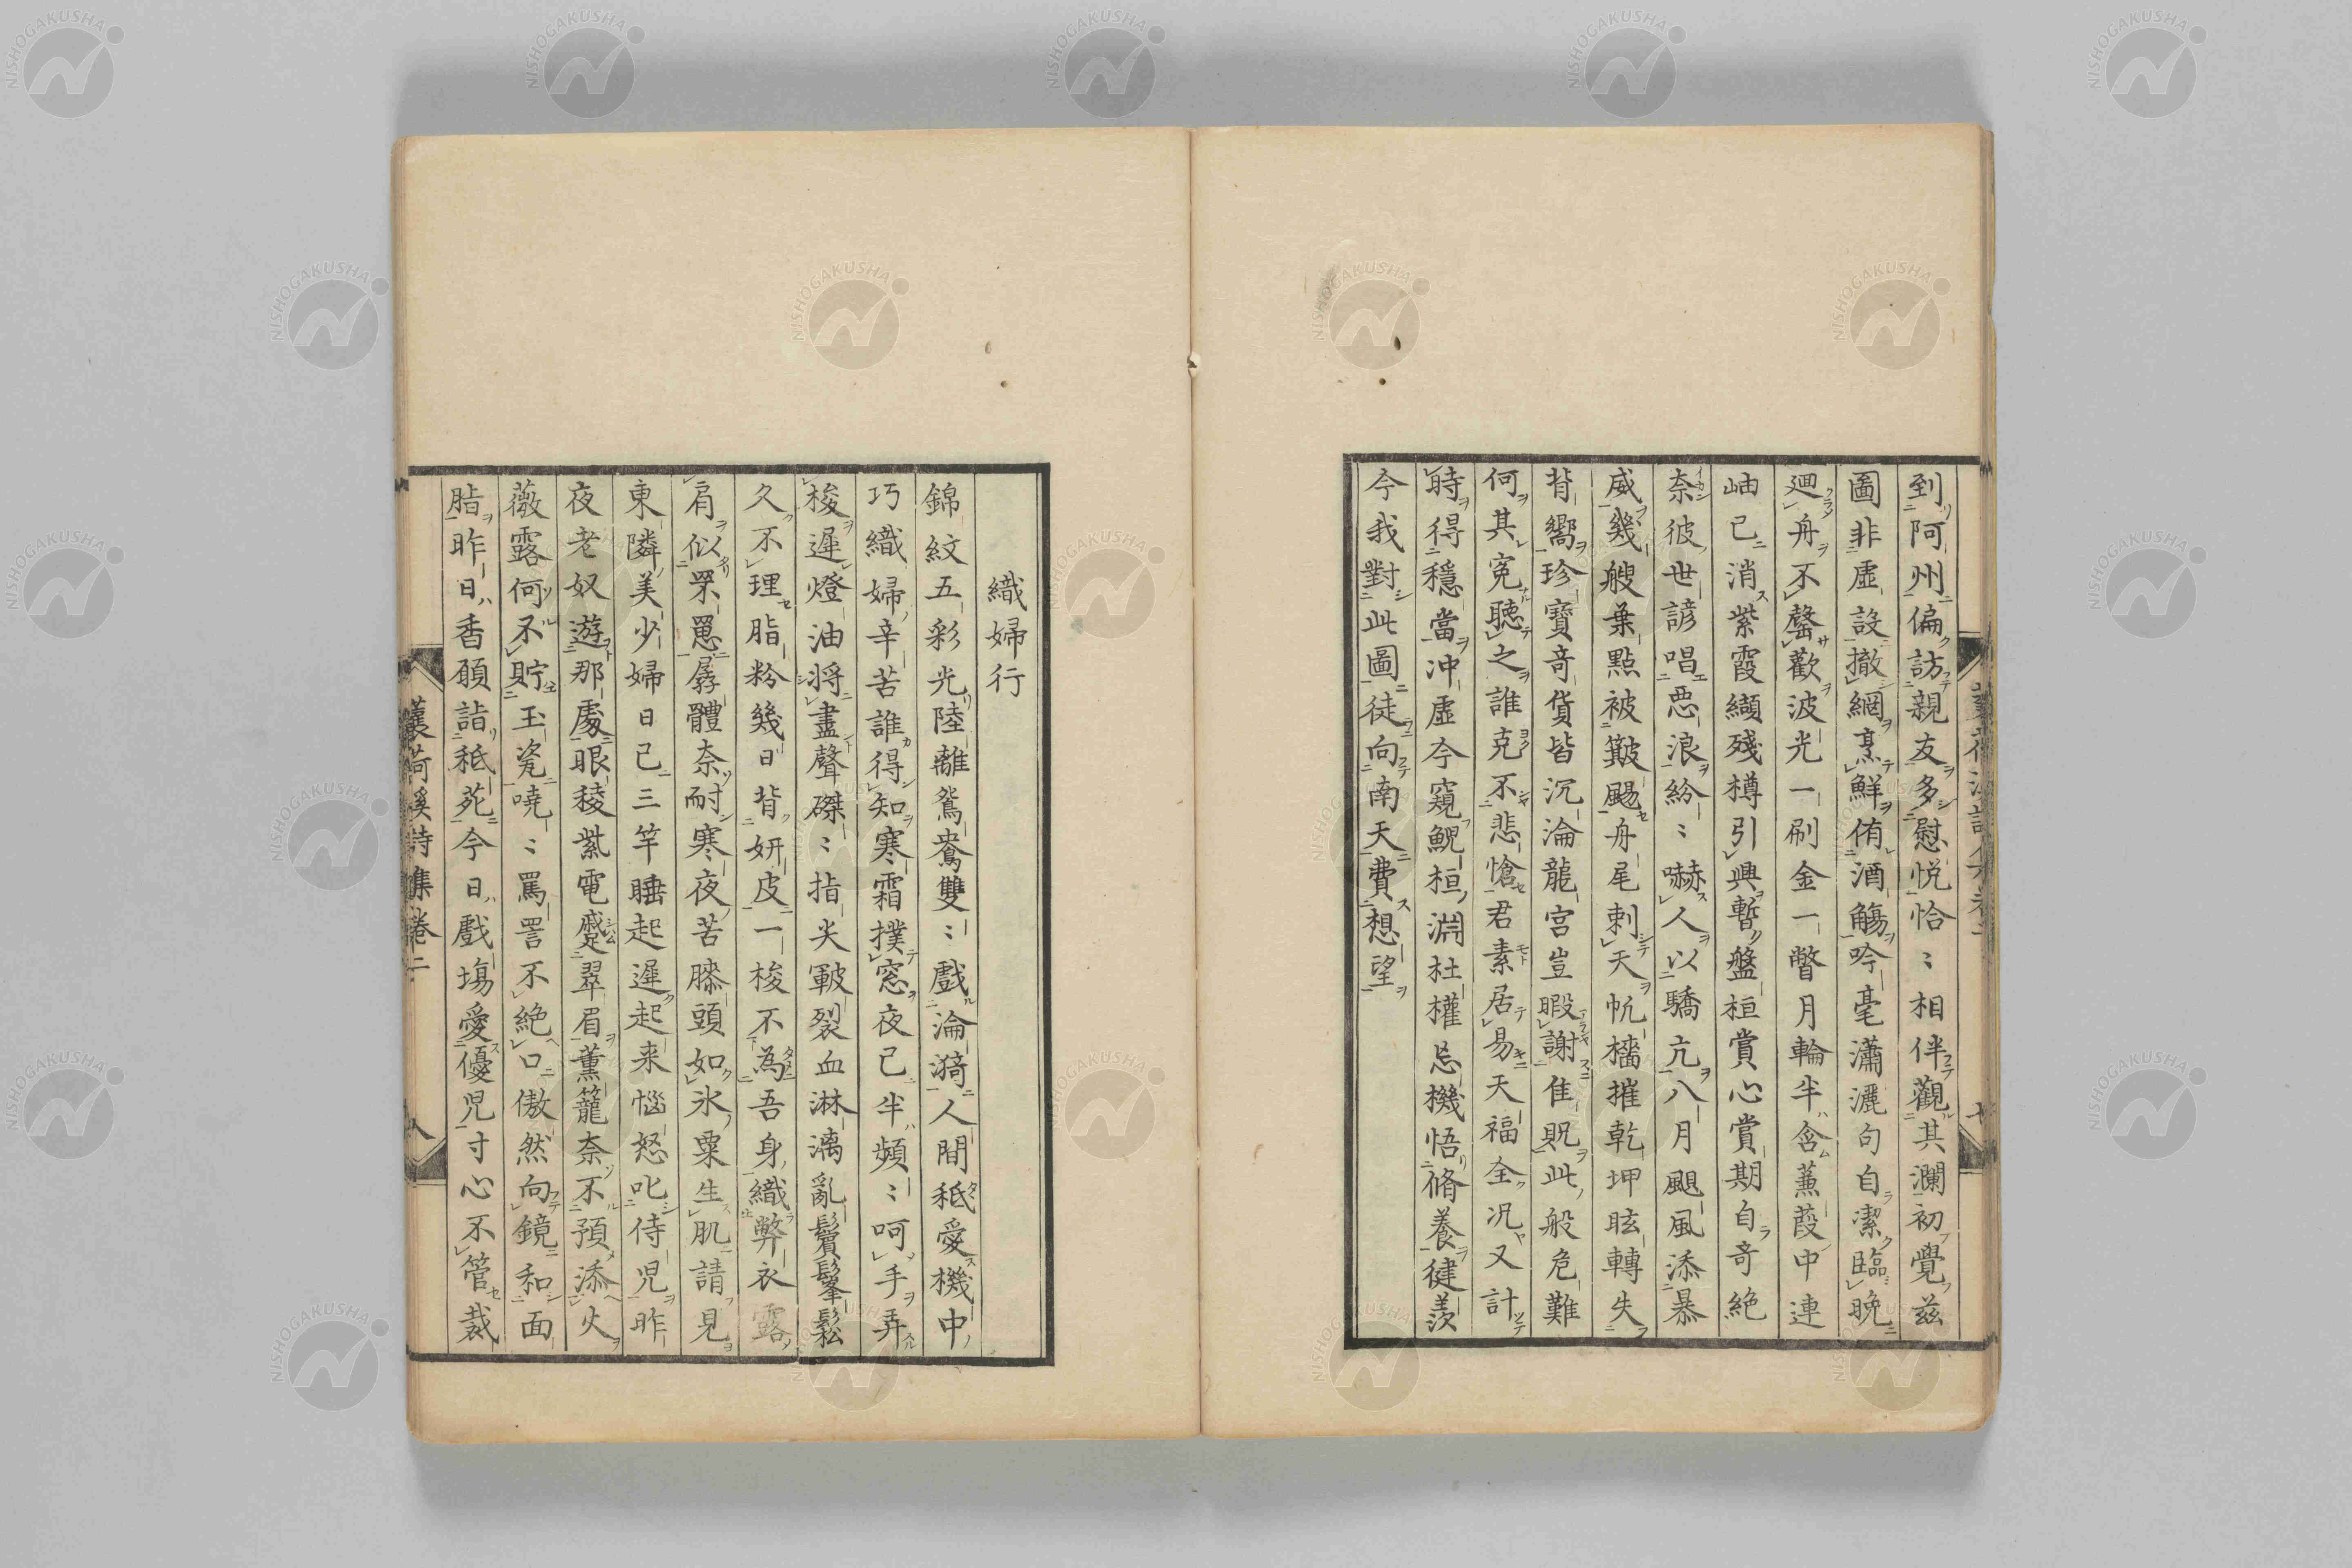 到阿州偏訪親友多慰悦恰〻相伴觀其瀾初覺茲
圖非虛設撤網烹鮮侑酒觴吟毫瀟灑句自潔臨晚
廻舟不罄歡波光一刷金一瞥月輪半含蒹葭中連
岫已消紫霞纈殘樽引興暫盤桓賞心賞期自奇絶
奈彼世諺唱惡浪紛〻嚇人以驕亢八月颶風添暴
威幾艘葉點被簸颺舟尾刺天帆檣摧乾坤眩轉失
背嚮珍寶奇貨皆沉淪龍宮豈暇謝隹貺此般危難
何其寃聽之誰克不悲愴君素居易天福全况又計
時得穩當冲虛今窺鯢桓淵杜權忘機悟脩養健羨
今我對此圖徒向南天費想望
織婦行
錦紋五彩光陸離鴛鴦雙〻戲淪漪人間秪愛機中
巧織婦辛苦誰得知寒霜撲窓夜已半頻〻呵手弄
梭遲燈油將盡聲磔〻指尖皸裂血淋漓亂鬢鬅鬆
久不理脂粉幾日背妍皮一梭不為吾身織弊衣露
肩似罘罳孱體奈耐寒夜苦膝頭如氷粟生肌請見
東隣美少婦日已三竿睡起遲起来惱怒叱侍児昨
夜老奴遊那處眼稜紫電蹙翠眉薫籠奈不預添火
薇露何不貯玉瓷嘵〻罵詈不絶口傲然向鏡和面
脂昨日香願詣秪苑今日戲塲愛優児寸心不管裁
蘘荷溪詩集卷二
八
NISHOGAKUSHA